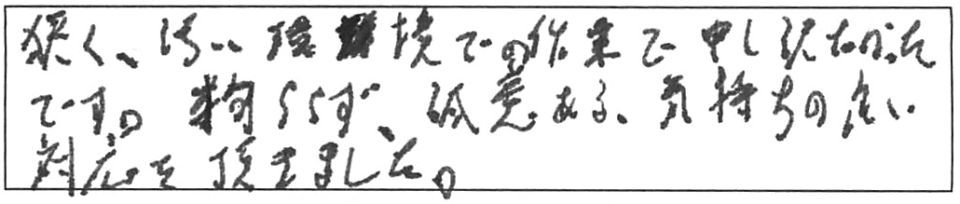 狭く、汚い環境での作業で申し訳なかった
です。 誠意ある、気持ちの良い
対応を頂きました。